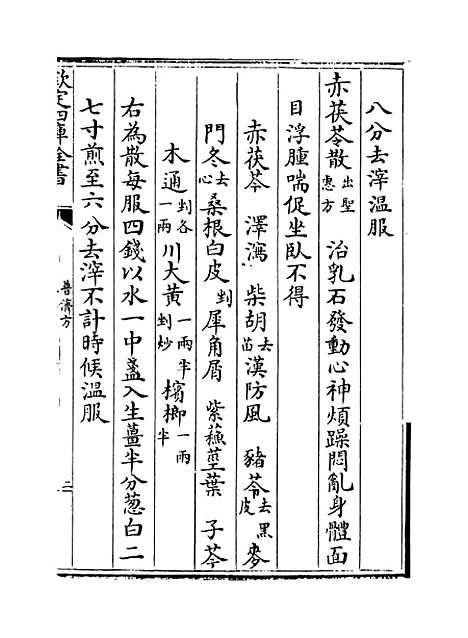 八分去滓溫服
赤茯苓散出聖惠方 治乳石發動心神煩躁悶亂身體面
目浮腫喘促坐臥不得
赤茯苓 澤瀉 柴胡去苗 漢防風 豬苓去黑皮 麥
門冬去心 桑根白皮剉 犀角屑 紫蘓莖葉 子芩
木通剉各一兩 川大黃一兩半剉炒 檳榔一兩半
右為散每服四錢以水一中盞入生薑半分葱白二
七寸煎至六分去滓不計時候溫服
欽定四庫全書
普濟方
二